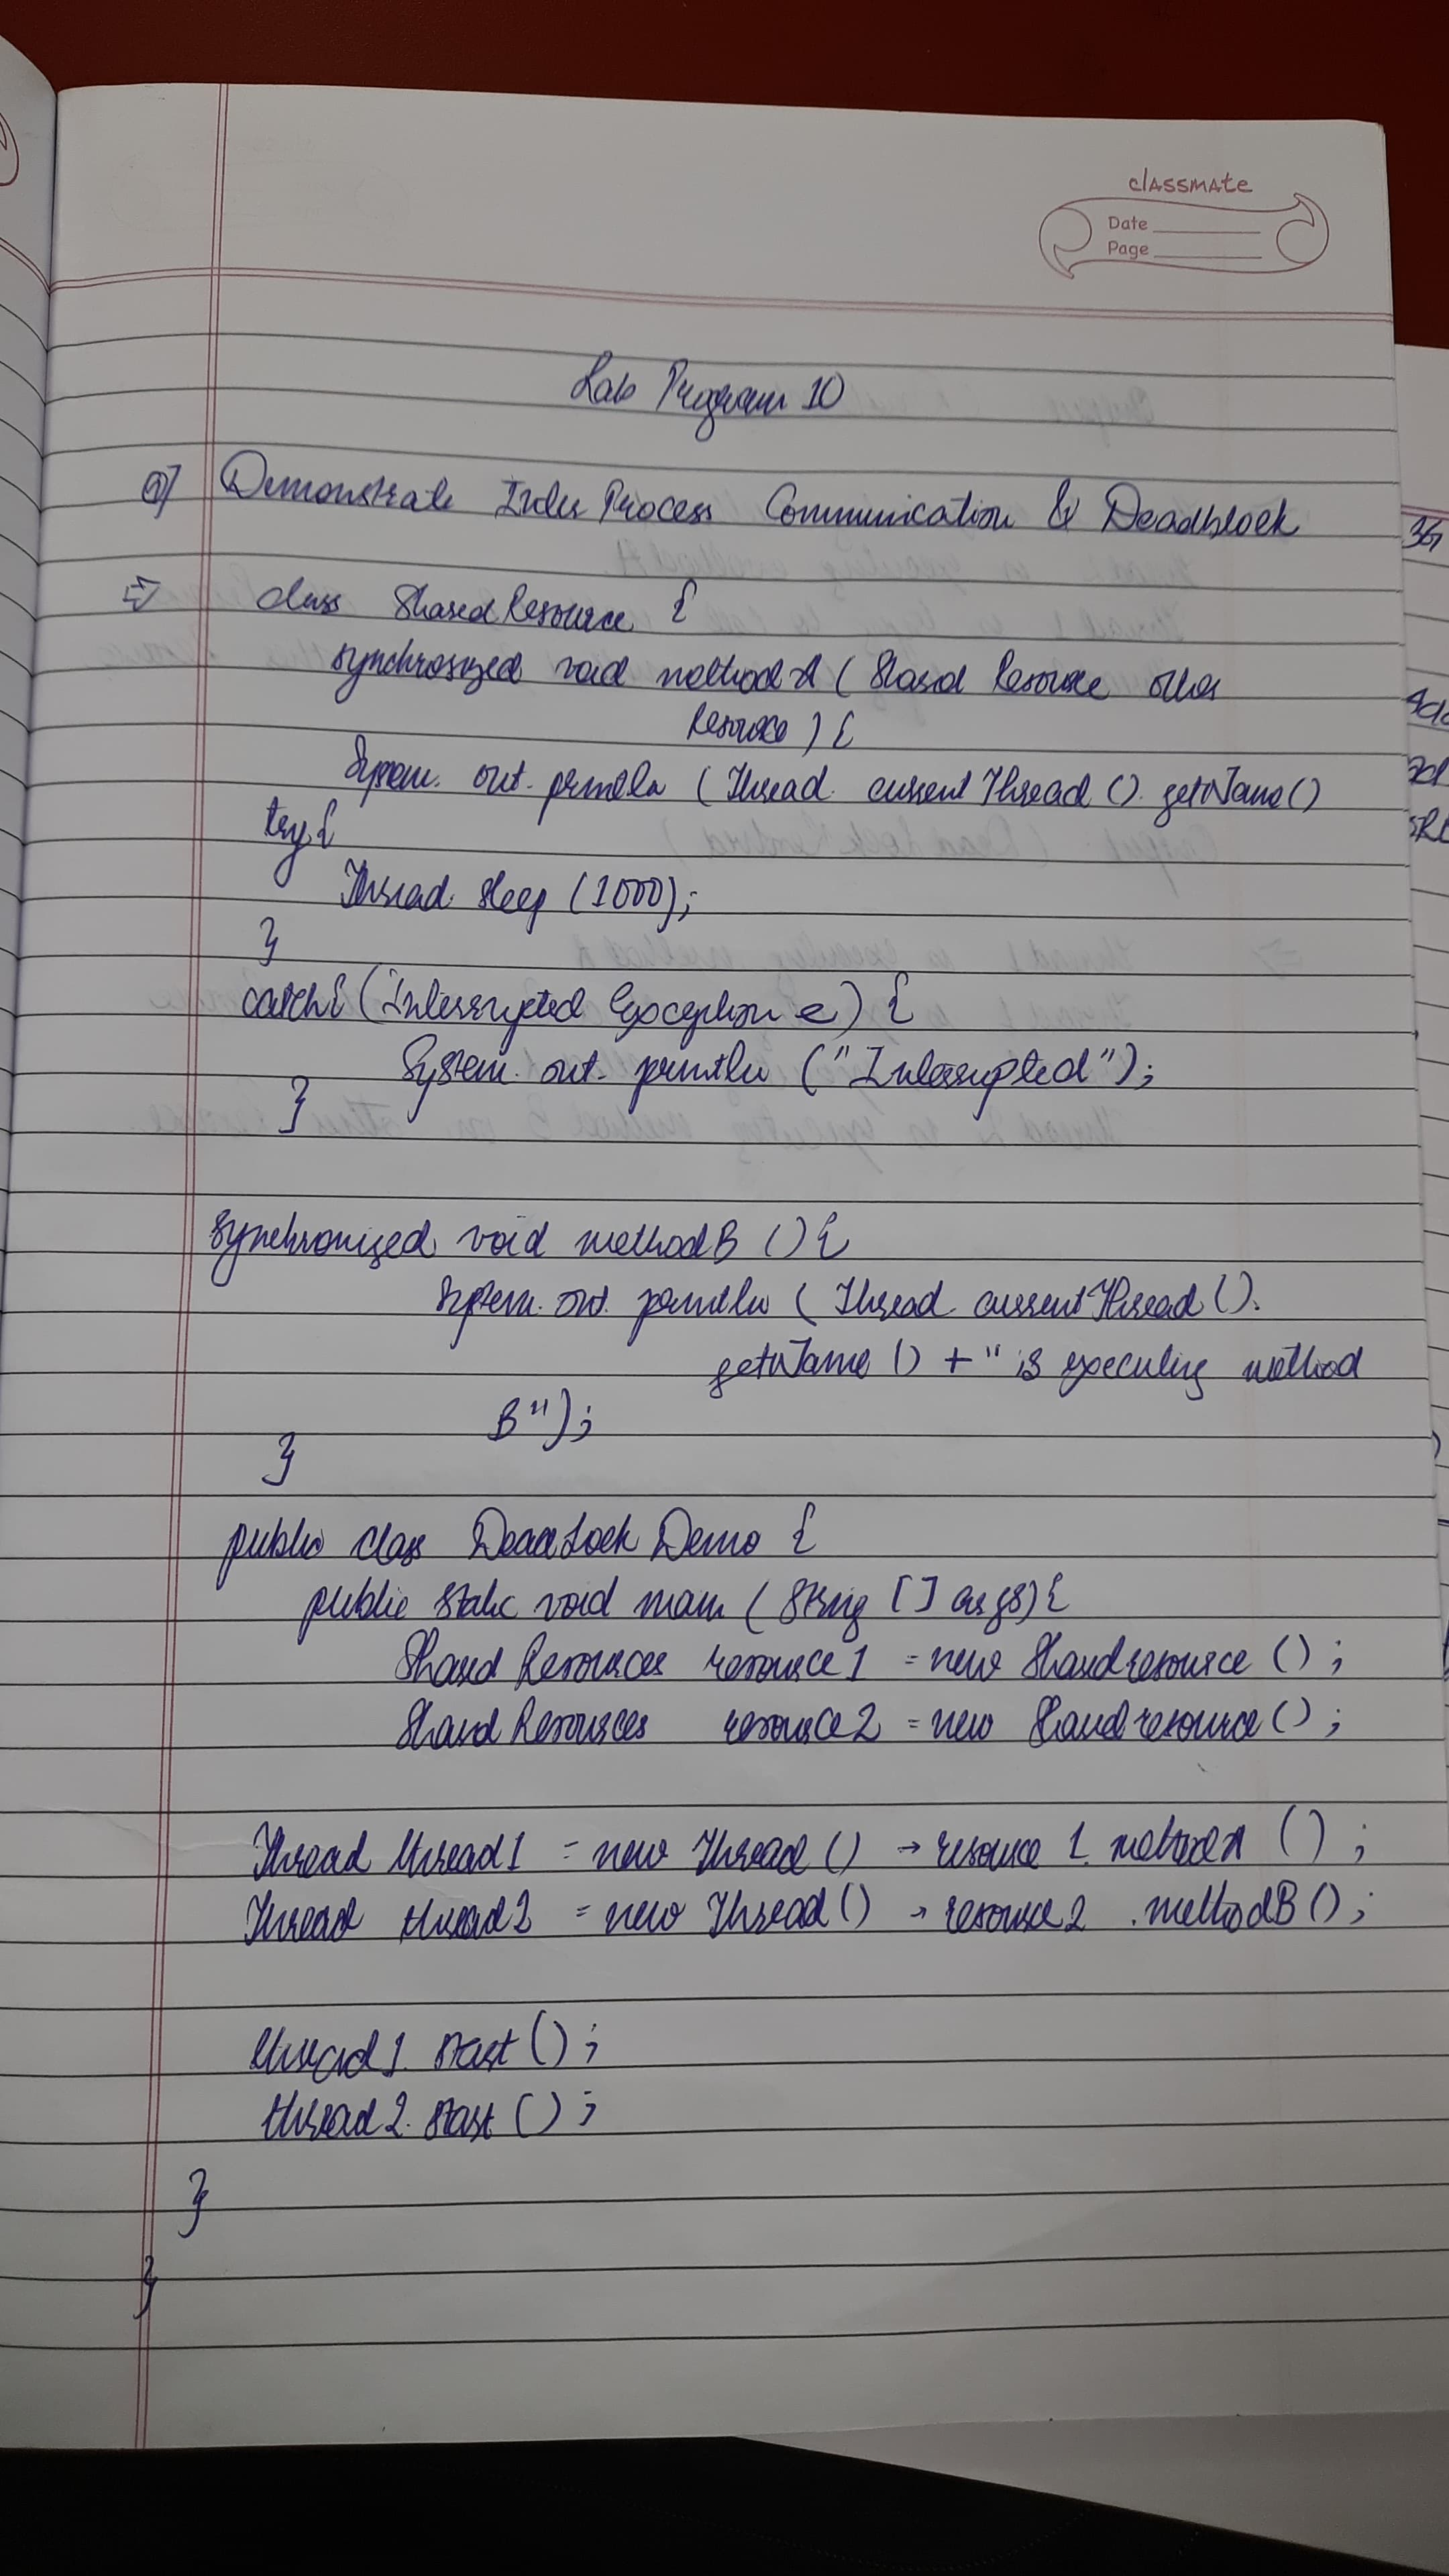 classmate
Date
Page
Lab Program 10
Q] Demonstrate Inter Process Communication & Deadblock
⇒ class Shared Resource {
synchronized void method A ( Shared Resource other
Resource ) {
System. out. println ( Thread. current Thread (). getName ()
try {
Thread. sleep (1000);
}
catch { (Interrupted Exception e) {
System. out. println ("Interrupted");
}
synchronized void method B () {
System. out. println ( Thread. current Thread ().
getName () + " is executing method
B");
}
public class DeadLock Demo {
public static void main ( String [] args) {
Shared Resources resource 1 = new Shared resource () ;
Shared Resources resource 2 = new Shared resource () ;
Thread thread 1 = new Thread () → resource 1. method A () ;
Thread thread 2 = new Thread () → resource 2 . method B () ;
thread 1. start () ;
thread 2. start () ;
}
}